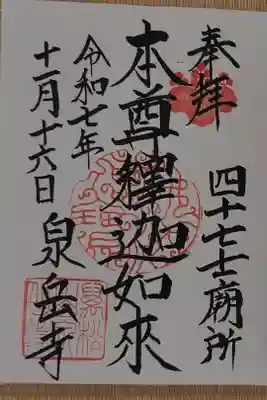 奉拝
四十七士廟所
本尊釋迦如來
令和七年
十一月十六日
泉岳寺